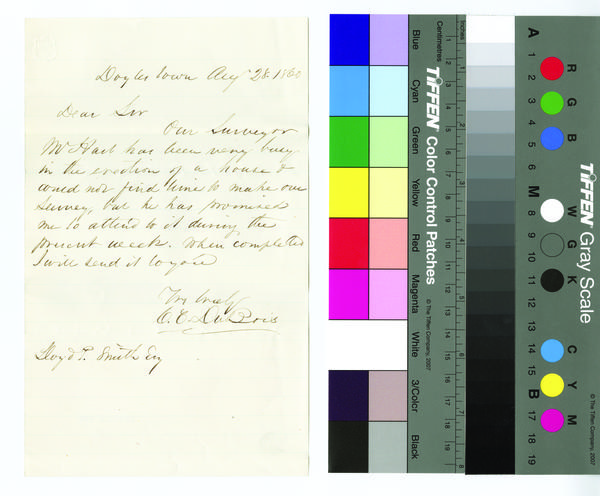 Doylestown Augt 28. 1860
Dear Sir
Our Surveyor
Mr Hart has been very busy
in the erection of a house &
could not find time to make our
Survey, but he has promised
me to attend to it during the
present week. When completed
I will send it to you
Very truly
C. E. DuBois
Lloyd P. Smith Esq
Blue
Cyan
Green
Yellow
Red
Magenta
White
3/Color
Black
Centimetres
Inches
TIFFEN Color Control Patches
© The Tiffen Company, 2007
1 2 3 4 5 6 7 8 9 10 11 12 13 14 15 16 17 18 19
1 2 3 4 5 6 7 8
A 1 2 3 4 5 6 M 8 9 10 11 12 13 14 15 B 17 18 19
R G B
W G K
C Y M
TIFFEN Gray Scale
© The Tiffen Company, 2007